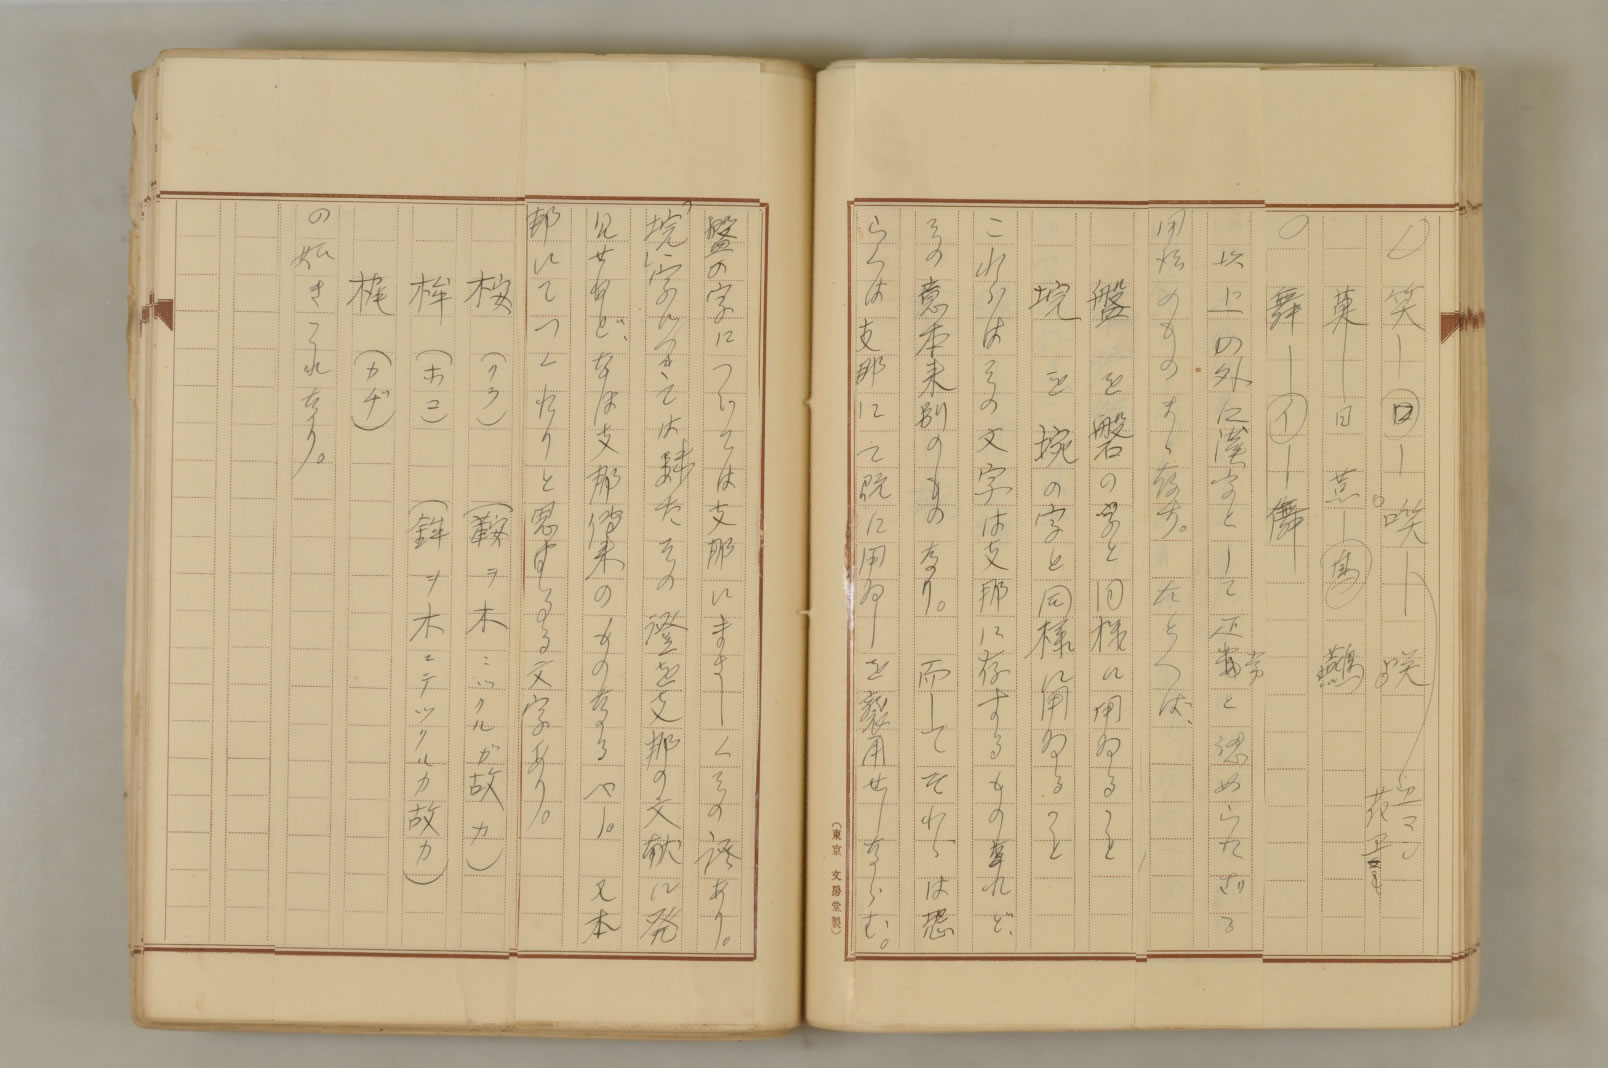 笑―口―咲―
菓―日 燕―鳥 鷰
舞―イ―儛
以上の外に漢字として正當と認めらたざる
用法のものすら存す。たとへば、
盤を磐の字と同様に用ゐること
垸を埦の字と同様に用ゐること
これらはその文字は支那に存するものなれど、
その意本来別のものなり。而してそれらは恐
らくは支那にて既に用ゐしを襲用せしならむ。
盤の字については支那にまさしくその證あり。
垸の字につきては未だその證を支那の文献に発
見せねど、なほ支那傳来のものなるべし。又本
邦にてつくれりと思はるる文字あり。
桉 (クラ) (鞍ヲ木ニツクルガ故カ)
桙 (ホコ) (鉾ヲ木ニテツクルカ故カ)
梶 (カヂ)
の如きこれなり。
(東京 文房堂製)